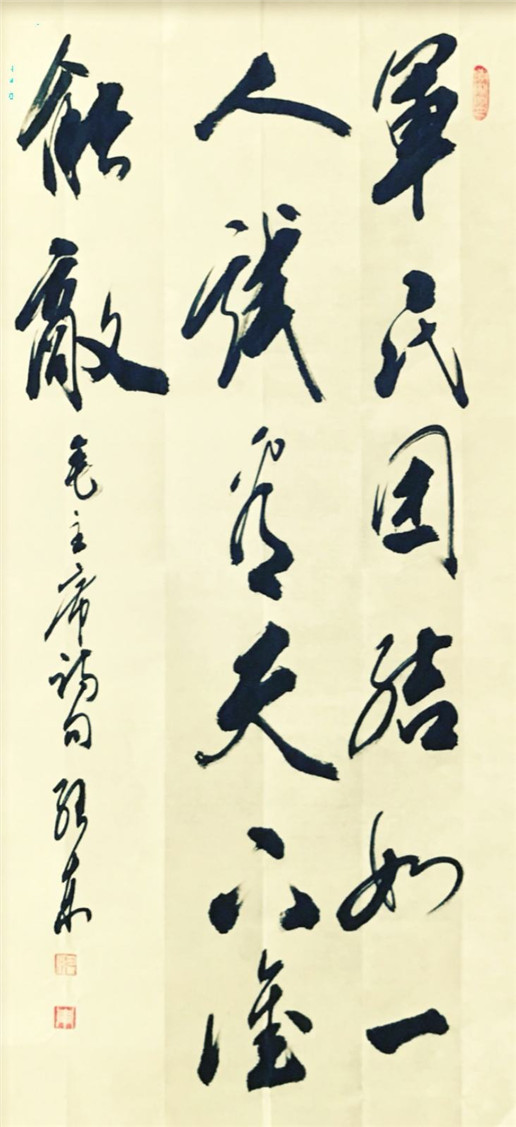 軍民团結如一
人試看天下誰
能敵
毛主席詩句